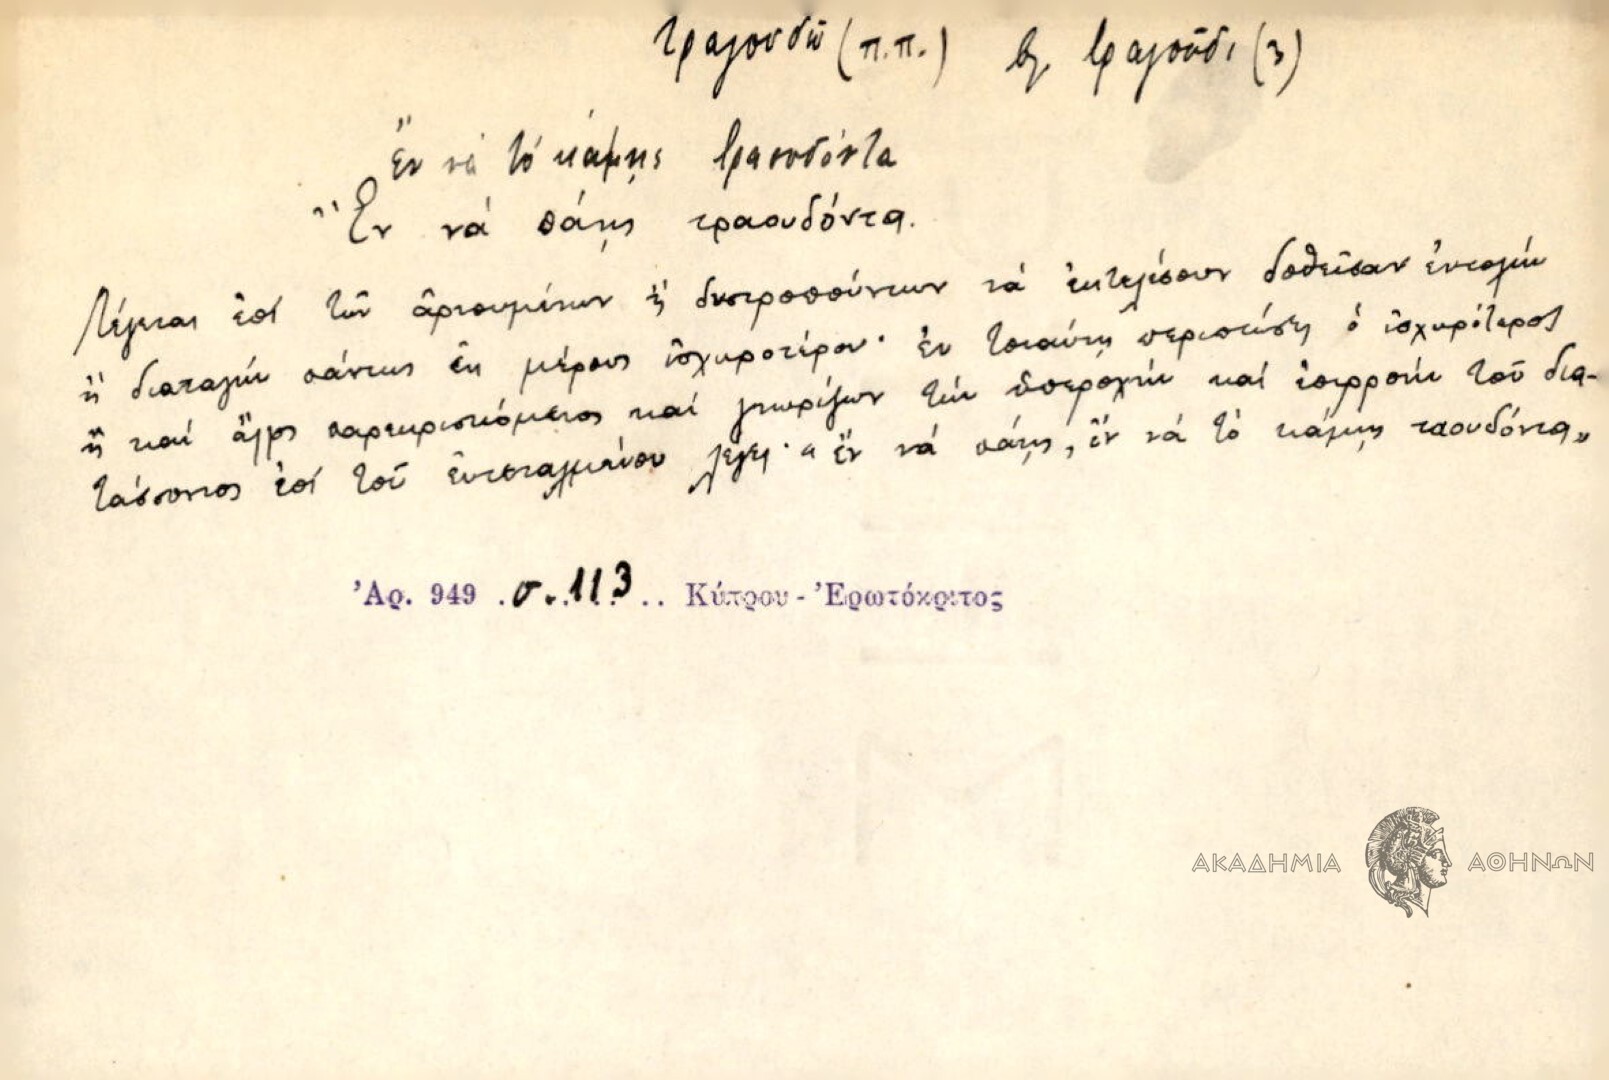 τραγουδῶ (π.π.) βλ. τραγοῦδι (3)
Ἔν νὰ τό κάμῃς τραουδόντα
Ἔν νά πάῃς τραουδόντα.
Λέγεται ἐπί τῶν ἀρνουμένων ἤ δυστροπούντων νά ἐκτελέσουν δοθεῖσαν ἐντολήν
ἤ διαταγήν πάντως ἐκ μέρους ἰσχυροτέρου· ἐν τοιαύτῃ περιπτώσῃ ὁ ἰσχυρότερος
ἤ καί ἄλλος παρευρισκόμενος καί γνωρίζων τήν ὑπεροχήν καί ἐπιρροήν τοῦ δια-
τάσσοντος ἐπί τοῦ ἐντεταλμένου λέγει· « ἔν νά πάῃς, ἔν νά τό κάμῃς ταουδόντα»
Ἀρ. 949 σ. 113 Κύπρου - Ἐρωτόκριτος
ΑΚΑΔΗΜΙΑ ΑΘΗΝΩΝ